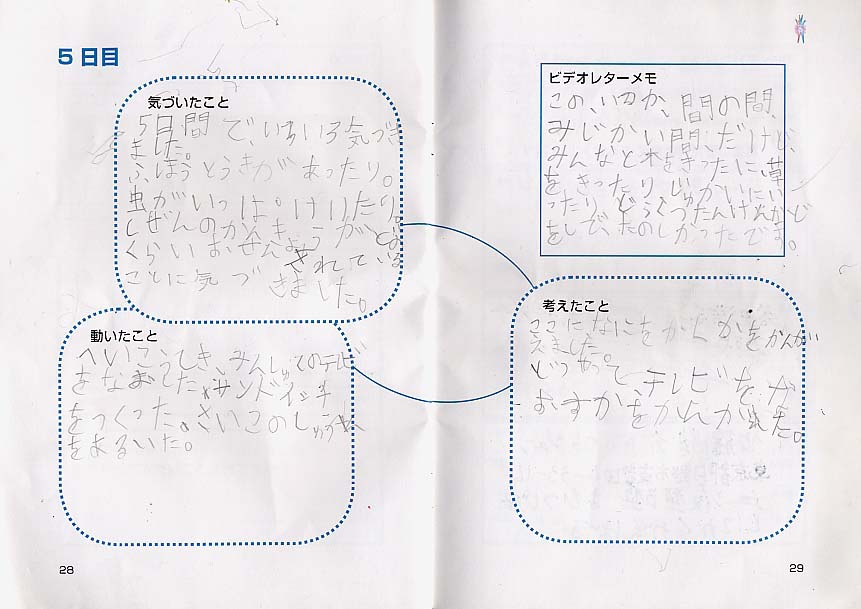 5日目
気づいたこと
5日間で、いろいろ気づき
ました。
ふほうとうきがあったり。
虫がいっぱ。けりたり。
しぜんのかんきょうがとお
くらいおせんされている
ことに気づきました。
動いたこと
へいこうしき、みんしゅてのテレビ
をなおした、サンドイッチ
をつくった。さいこのしゅうかい
をあるいた。
28
ビデオレターメモ
この、いつか、間の間、
みじかい間、だけど、
みんなと木を切ったに、草
をきったりじゅかいにい
ったり、どうくつたんけんなど
をしで、たのしかったです。
考えたこと
ここに、なにをかくかをかんが
えました。
どうやって、テレビをな
おすかをかんがえた。
29